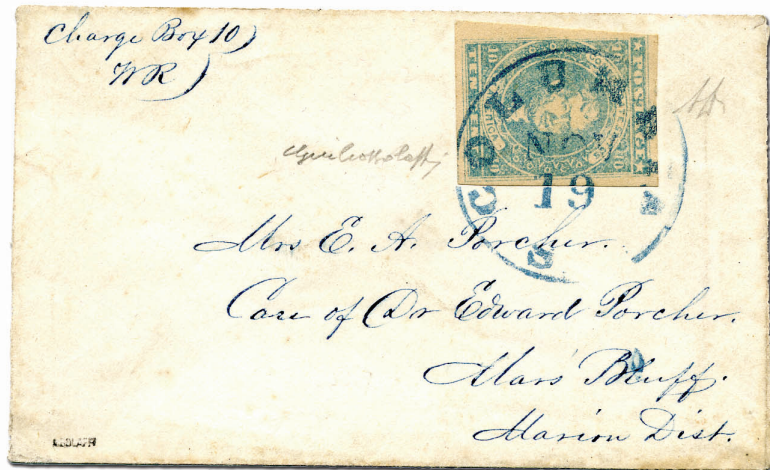 Charge Box 10)
WR)
COLUMBIA
NOV
19
S
Mrs E. A. Porcher.
Care of Dr Edward Porcher.
Mars Bluff.
Marion Dist.